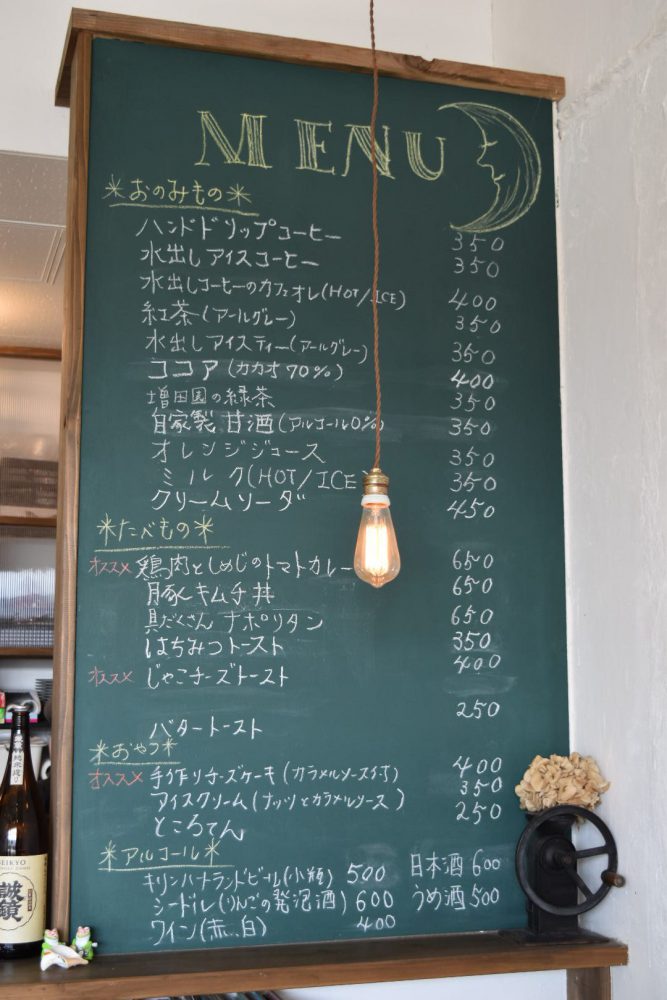 MENU
＊おのみもの＊
ハンドドリップコーヒー 350
水出しアイスコーヒー 350
水出しコーヒーのカフェオレ(HOT/ICE) 400
紅茶(アールグレー) 350
水出しアイスティー(アールグレー) 350
ココア(カカオ70%) 400
増田園の緑茶 350
自家製甘酒(アルコール0%) 350
オレンジジュース 350
ミルク(HOT/ICE) 350
クリームソーダ 450
＊たべもの＊
オススメ 鶏肉としめじのトマトカレー 650
豚キムチ丼 650
具だくさんナポリタン 650
はちみつトースト 350
オススメ じゃこチーズトースト 400
バタートースト 250
＊おやつ＊
オススメ 手作りチーズケーキ(カラメルソース付) 400
アイスクリーム(ナッツとカラメルソース) 350
ところてん 250
＊アルコール＊
キリンハートランドビール(小瓶) 500 日本酒 600
シードル(りんごの発泡酒) 600 うめ酒 500
ワイン(赤.白) 400
SEIKYO
誠鏡